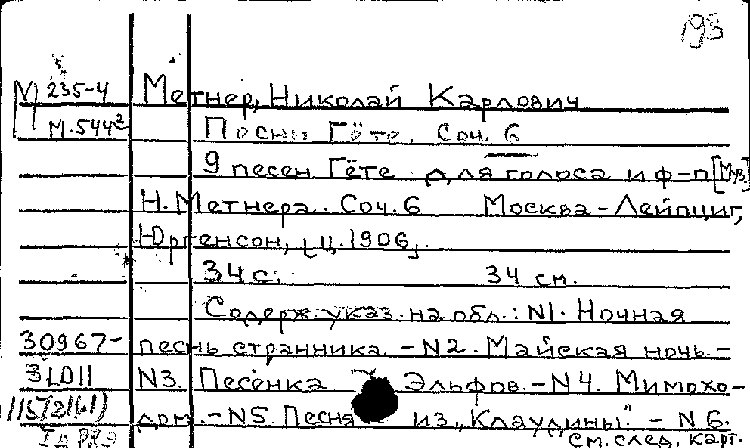 193
М 235-4 Метнер, Николай Карлович
М.544² Песни Гёте. Соч. 6
9 песен Гёте для голоса и ф-п [Муз]
Н. Метнера. Соч. 6 Москва - Лейпциг,
Юргенсон, [ц. 1906].
34 с. 34 см.
Содерж. указ. на обл.: N1. Ночная
30967- песнь странника. - N2. Майская ночь. -
31011 N3. Песенка Эльфов. - N4. Мимохо-
дом. - N5. Песня из „Клаудины". - N6.
см. след. карт.